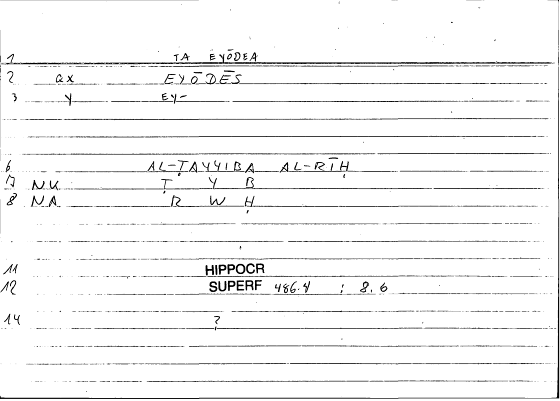 1 TA EYŌDEA
2 ax EYŌDĒS
3 y EY-
6 AL-ṬAYYIBA AL-RĪḤ
7 NK Ṭ Y B
8 NA R W Ḥ
11 HIPPOCR
12 SUPERF 486.4 ; 8.6
14 ?